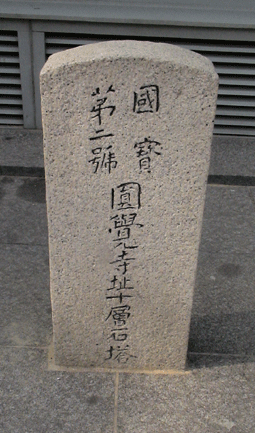 國寶
第二號
圓覺寺址十層石塔